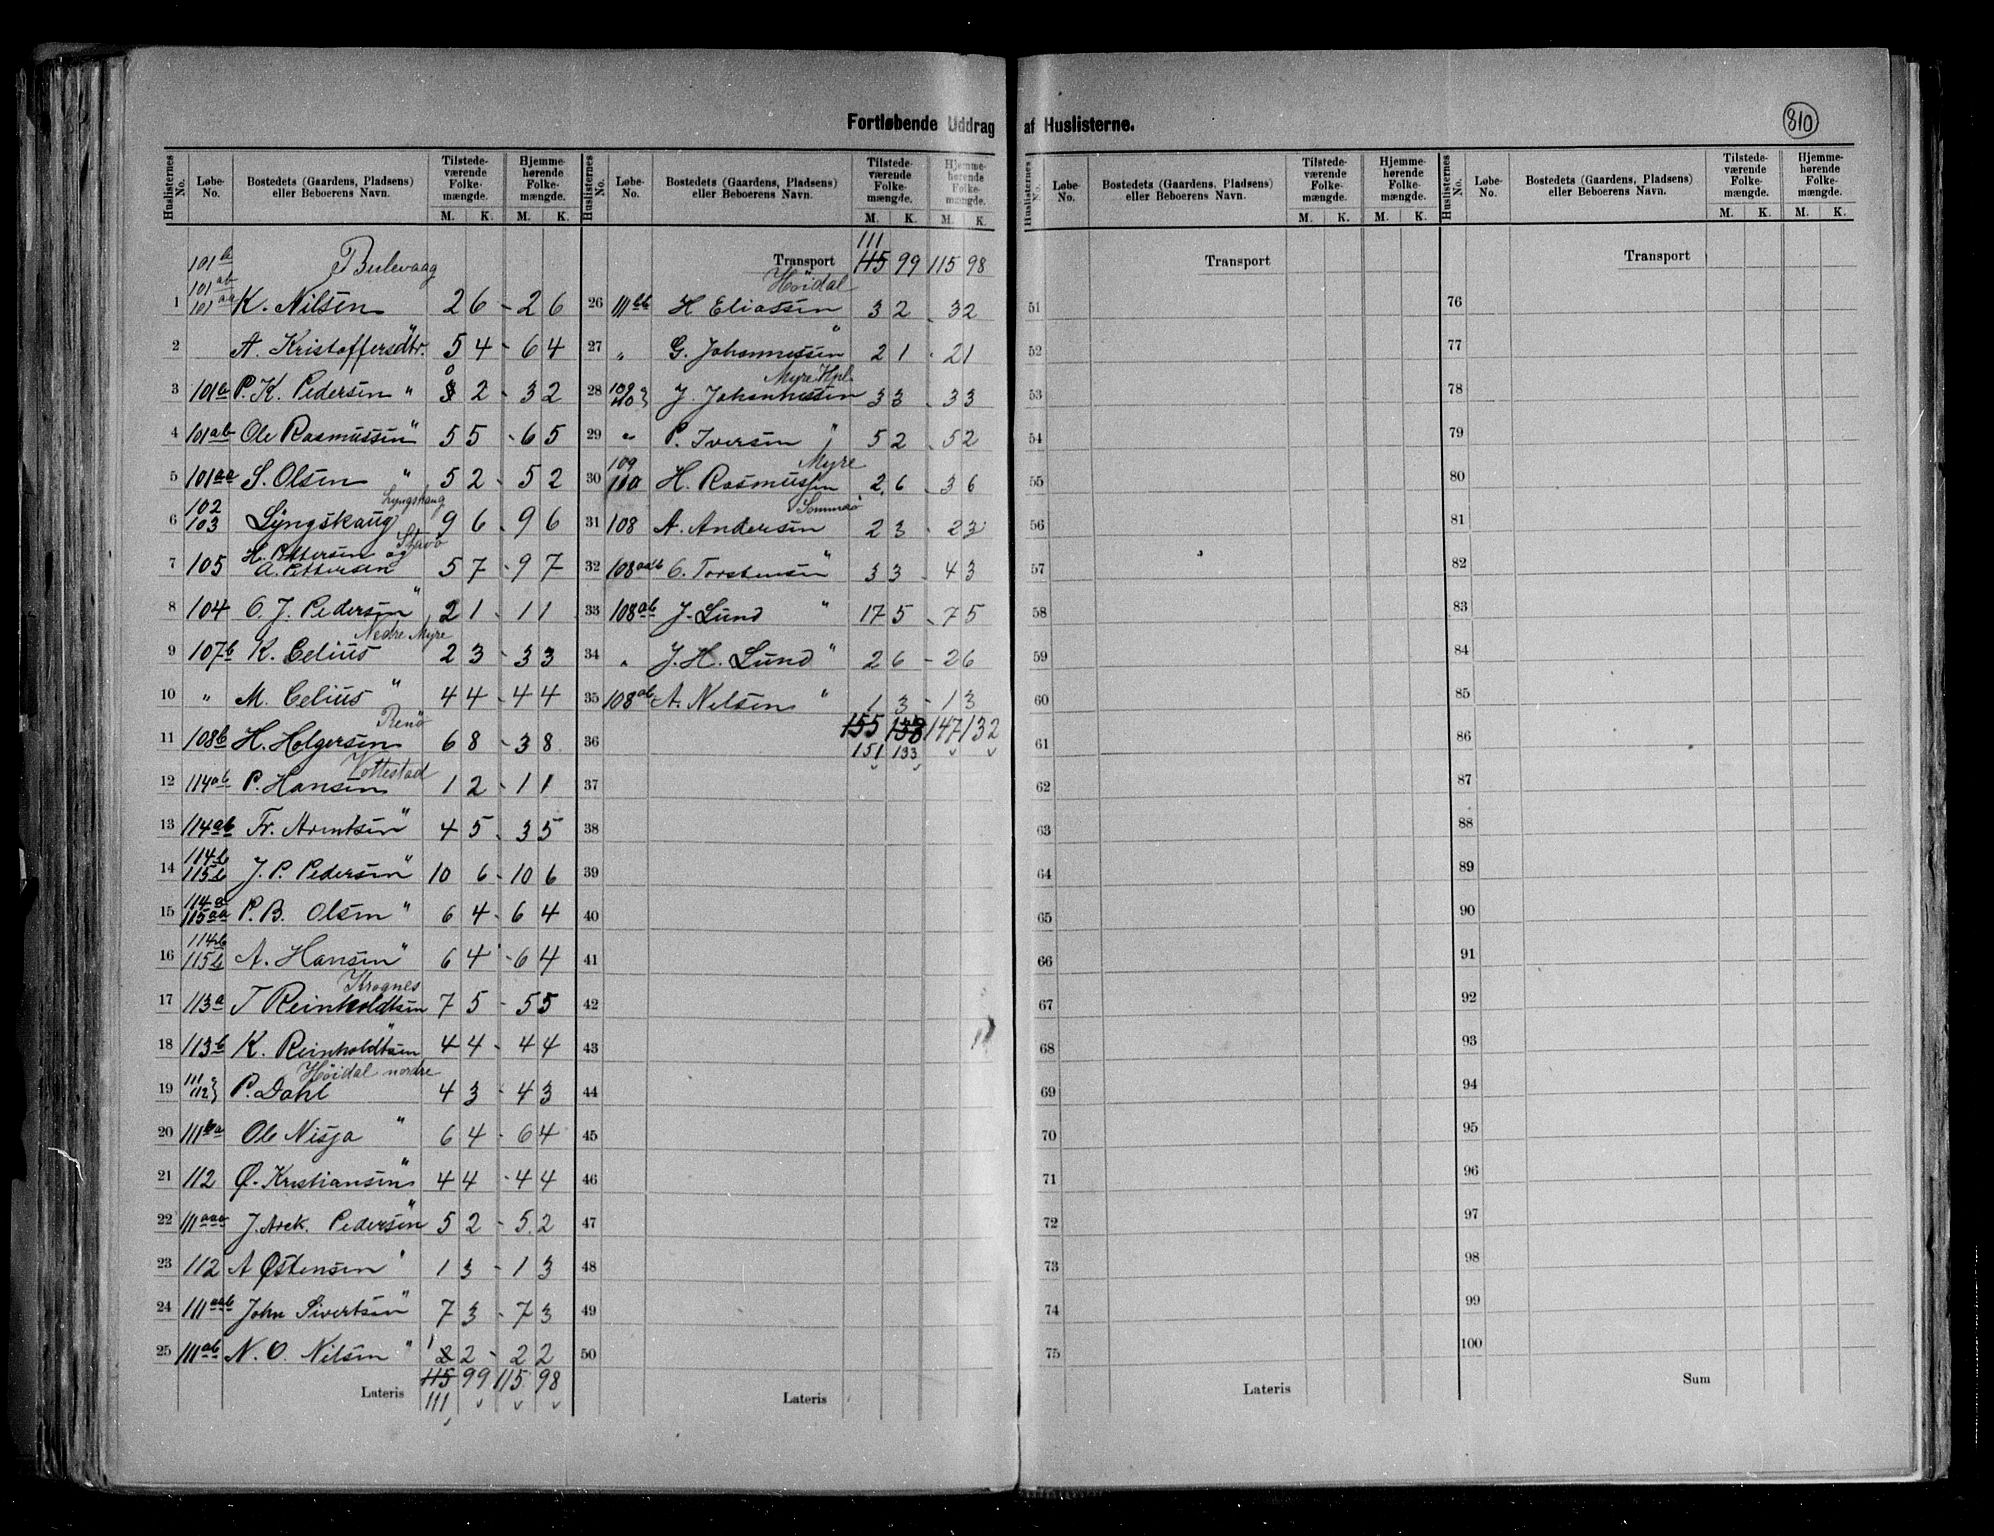 Fortløbende Uddrag af Huslisterne.
810
Huslisternes No. Løbe-No. Bostedets (Gaardens, Pladsens) eller Beboerens Navn. Tilstedeværende Folkemængde. M. K. Hjemmehørende Folkemængde. M. K.
Huslisternes No. Løbe-No. Bostedets (Gaardens, Pladsens) eller Beboerens Navn. Tilstedeværende Folkemængde. M. K. Hjemmehørende Folkemængde. M. K.
Huslisternes No. Løbe-No. Bostedets (Gaardens, Pladsens) eller Beboerens Navn. Tilstedeværende Folkemængde. M. K. Hjemmehørende Folkemængde. M. K.
Huslisternes No. Løbe-No. Bostedets (Gaardens, Pladsens) eller Beboerens Navn. Tilstedeværende Folkemængde. M. K. Hjemmehørende Folkemængde. M. K.
101b Bulevaag
101ab
1 101aa K. Nilsen 2 6 - 2 6
2 A. Kristoffersdtr. " 5 4 - 6 4
0
3 101b P. K. Pedersen " 3 2 - 3 2
4 101ab Ole Rasmussen " 5 5 - 6 5
5 101aa S. Olsen " 5 2 - 5 2
102 Lyngskaug
6 103 Lyngskaug 9 6 - 9 6
H. Pettersen og
7 105 A. Pettersen 5 7 - 9 7
8 104 O. J. Pedersen " 2 1 - 1 1
Nedre Myre
9 107b K. Celius 2 3 - 3 3
10 " M. Celius " 4 4 - 4 4
Renö
11 108b H. Holgersen 6 8 - 3 8
Vottestad
12 114ab P. Hansen 1 2 - 1 1
13 114ab Fr. Arntsen " 4 5 - 3 5
114b
14 115b J. P. Pedersen " 10 6 - 10 6
114a
15 115aa P. B. Olsen " 6 4 - 6 4
114b
16 115b A. Hansen " 6 4 - 6 4
Krognes
17 113a T Reinholdtsen 7 5 - 5 5
18 113b K. Reinholdtsen " 4 4 - 4 4
111 Höidal nordre
19 112 P. Dahl 4 3 - 4 3
20 111ba Ole Nisja " 6 4 - 6 4
21 112 Ø. Kristiansen " 4 4 - 4 4
22 111aaa J. Arck. Pedersen " 5 2 - 5 2
23 112 A Østensen " 1 3 - 1 3
24 111aab John Sivertsen " 7 3 - 7 3
1
25 111ab N. O. Nilsen " 2 2 - 2 2
115 99 115 98
Lateris 111
111
Transport 115 99 115 98
Höidal
26 111bb H Eliassen 3 2 - 3 2
27 " G. Johannessen " 2 1 - 2 1
109 Myre Hpl
28 110 J. Johannessen 3 3 - 3 3
29 " P. Iversen " 5 2 - 5 2
109 Myre
30 110 H. Rasmussen 2 6 - 3 6
Sommaö
31 108 A. Andersen 2 3 - 2 3
32 108aab O. Torstensen " 3 3 - 4 3
33 108ab J. Lund " 17 5 - 7 5
34 " J. H. Lund " 2 6 - 2 6
35 108ab A. Nilsen " 1 3 - 1 3
155 138 147 132
36 151 133
37
38
39
40
41
42
43
44
45
46
47
48
49
50
Lateris
Transport
51
52
53
54
55
56
57
58
59
60
61
62
63
64
65
66
67
68
69
70
71
72
73
74
75
Lateris
Transport
76
77
78
79
80
81
82
83
84
85
86
87
88
89
90
91
92
93
94
95
96
97
98
99
100
Sum